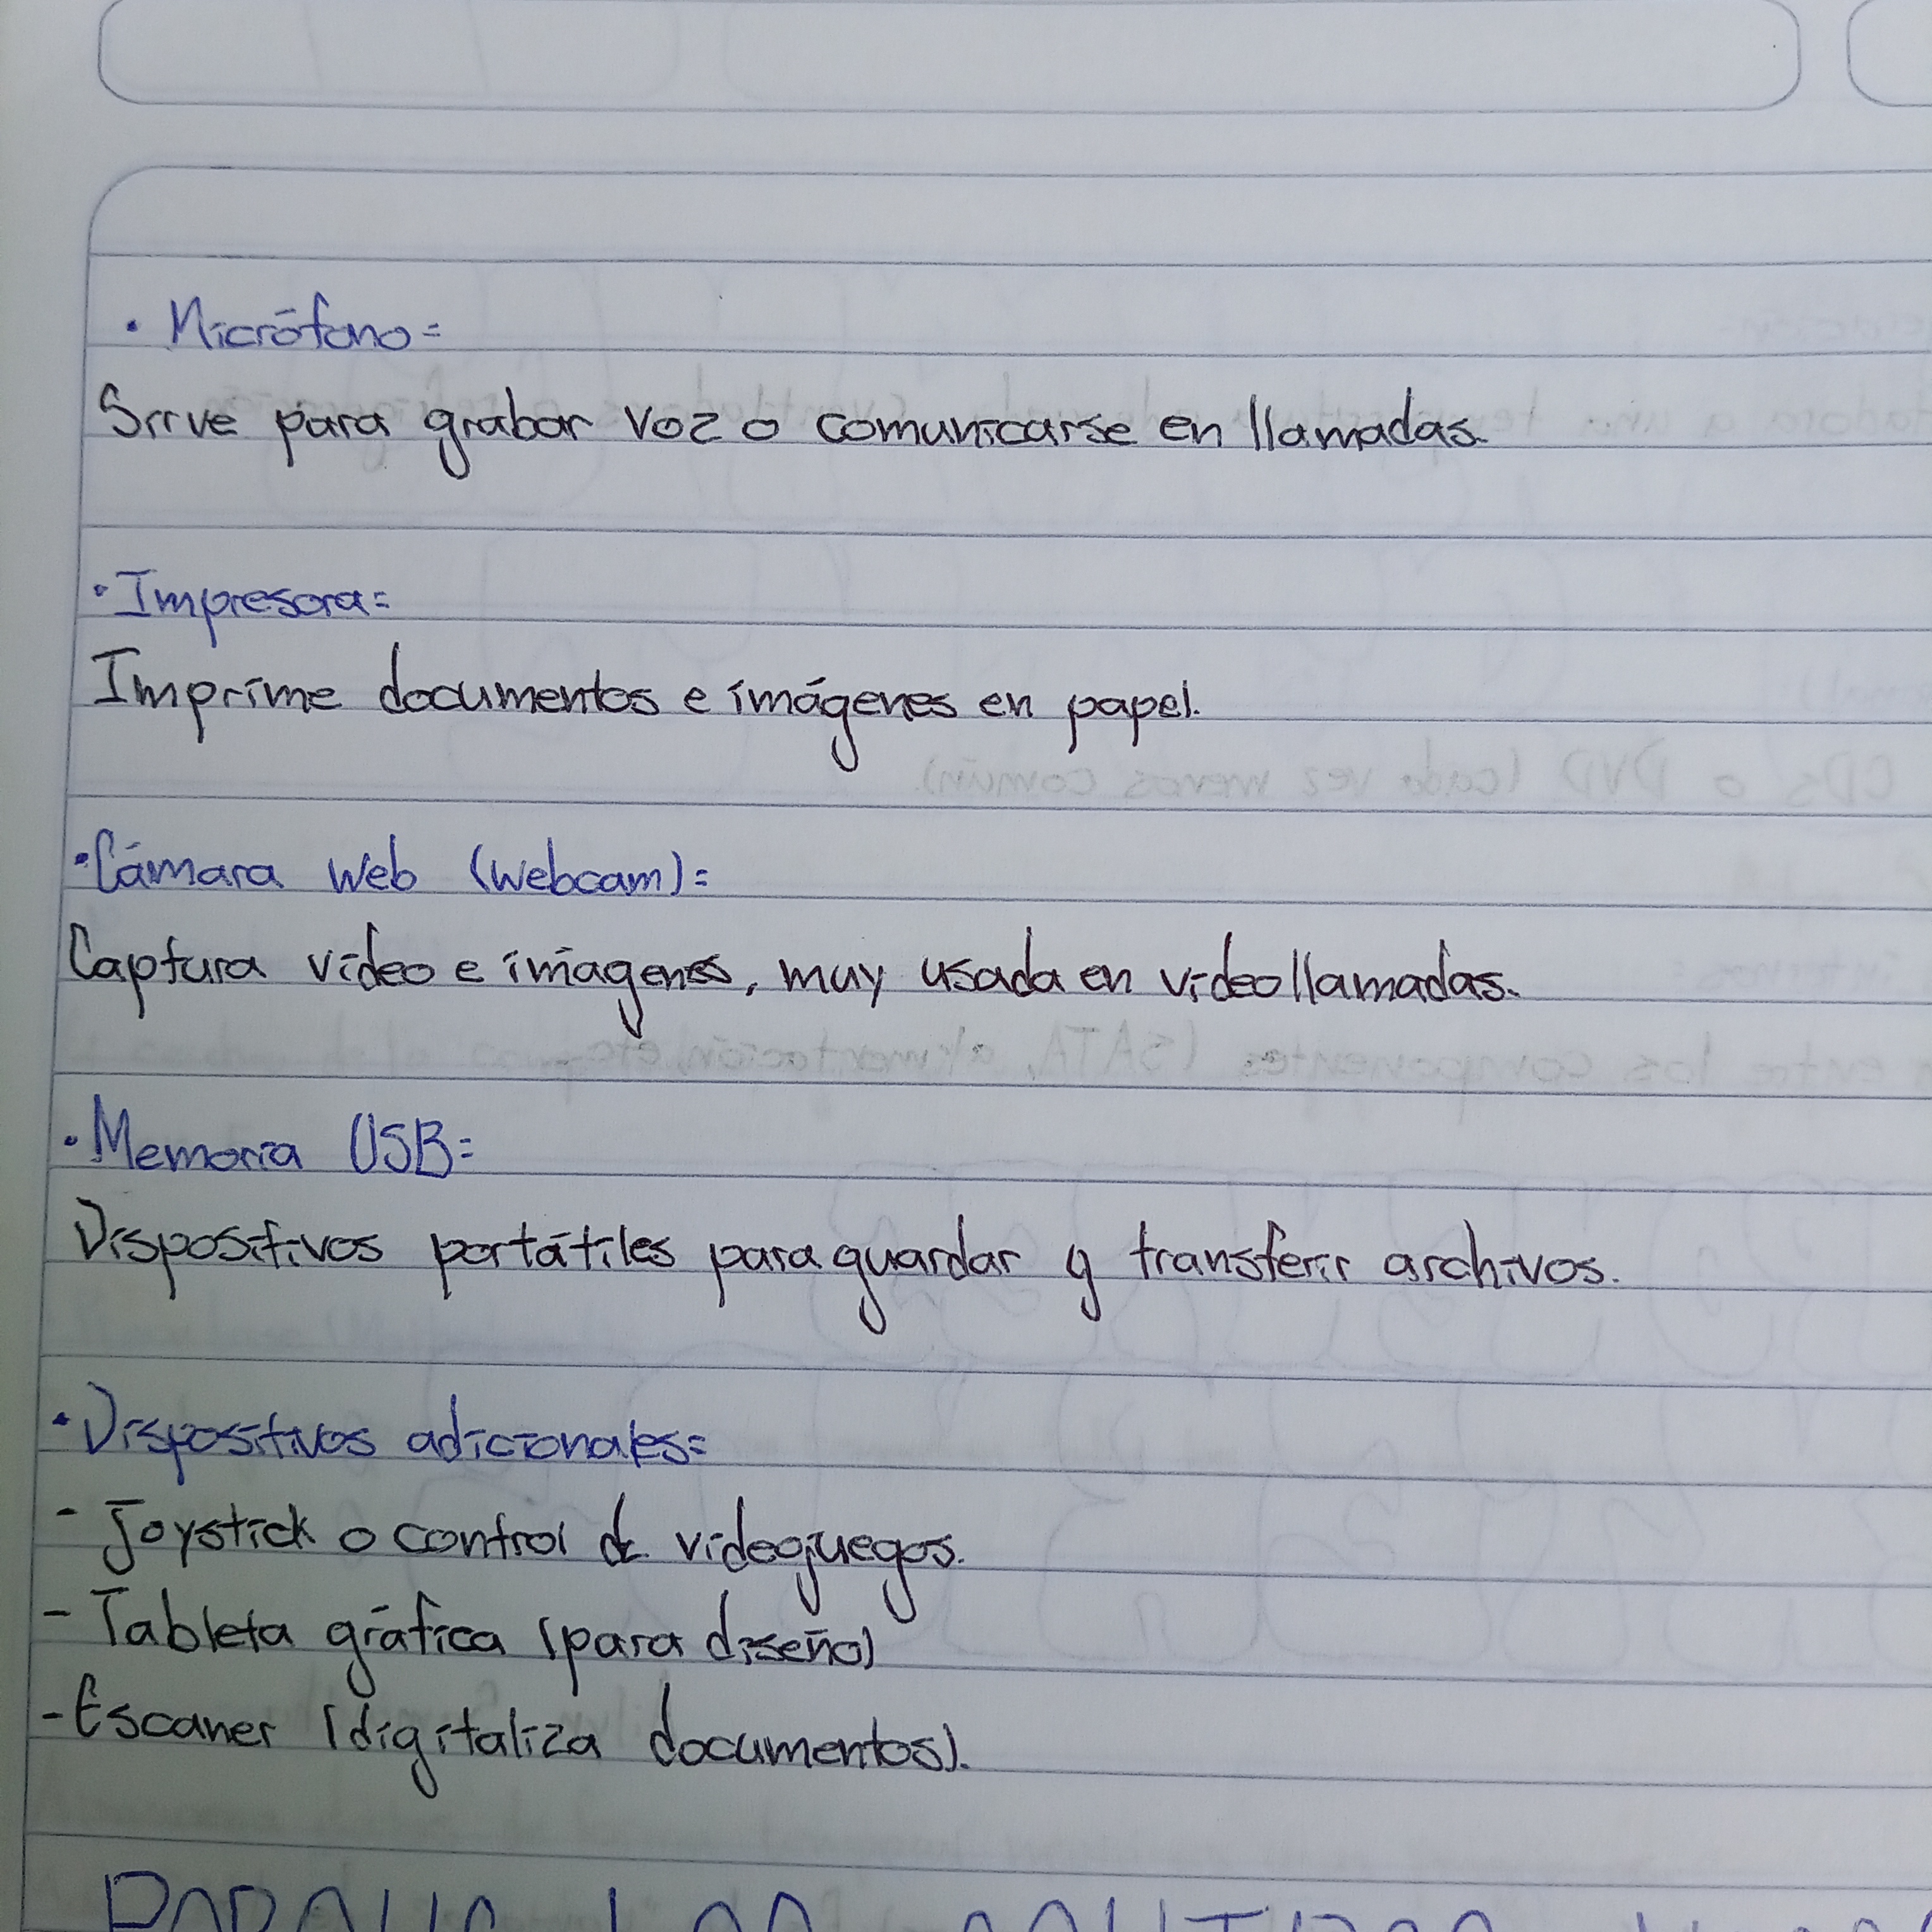 · Micrófono=
Srrve para grabar voz o comunicarse en llamadas.
· Impresora=
Imprime documentos e imágenes en papel.
· Cámara web (webcam)=
Captura video e imágenes, muy usada en videollamadas.
· Memoria USB=
Dispositivos portátiles para guardar y transferir archivos.
· Dispositivos adicionales=
- Joystick o control de videojuegos.
- Tableta gráfica (para diseño)
- Escaner (digitaliza documentos).